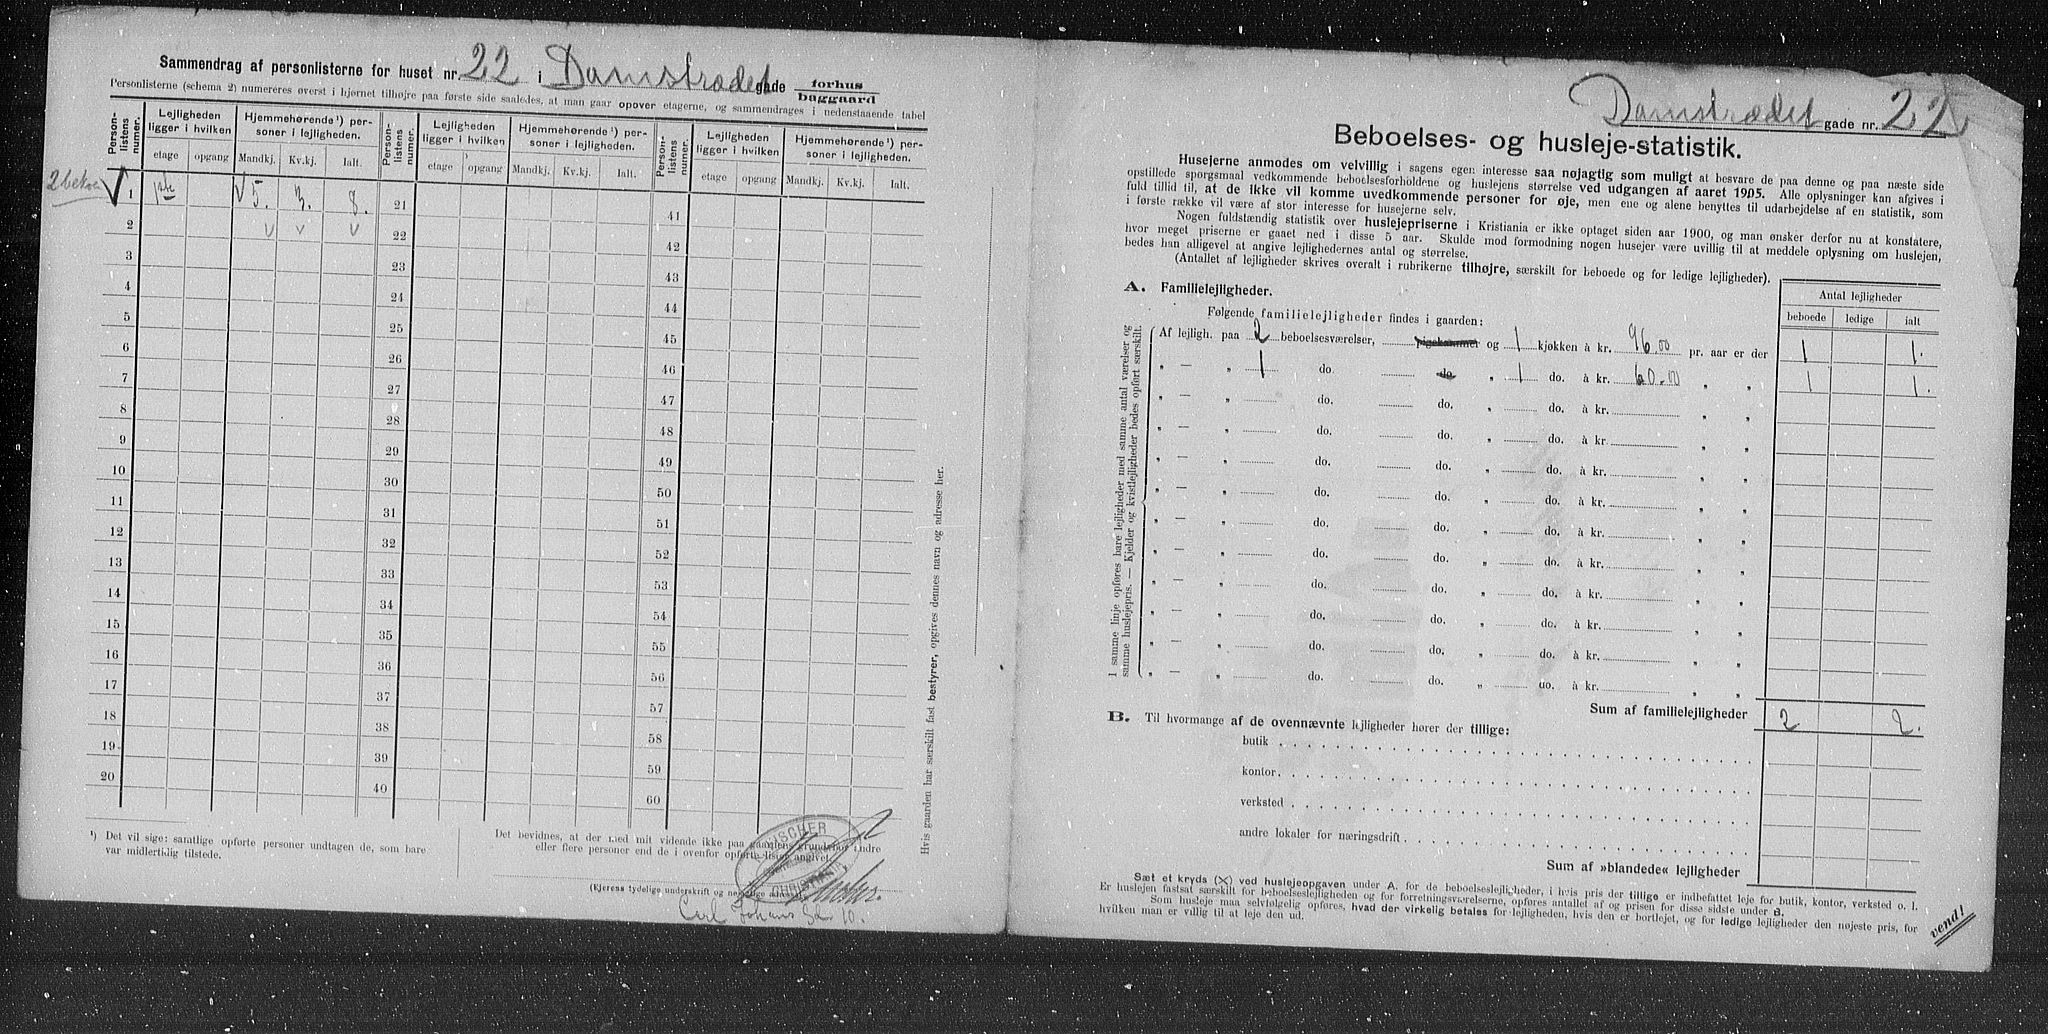 Sammendrag af personlisterne for huset nr. 22 i Damstrædet gade forhus
baggaard
Personlisterne (schema 2) numereres øverst i hjørnet tilhøjre paa første side saaledes, at man gaar opover etagerne, og sammendrages i nedenstaaende tabel
Person-listens numer. Lejligheden ligger i hvilken Hjemmehørende ¹) personer i lejligheden. Person-listens numer. Lejligheden ligger i hvilken Hjemmehørende ¹) personer i lejligheden. Person-listens numer. Lejligheden ligger i hvilken Hjemmehørende ¹) personer i lejligheden.
etage opgang Mandkj. Kv.kj. Ialt. etage opgang Mandkj. Kv.kj. Ialt. etage opgang Mandkj. Kv.kj. Ialt.
1 1ste 5. 3. 8. 21 41
2 22 42
3 23 43
4 24 44
5 25 45
6 26 46
7 27 47
8 28 48
9 29 49
10 30 50
11 31 51
12 32 52
13 33 53
14 34 54
15 35 55
16 36 56
17 37 57
18 38 58
19 39 59
20 40 60
¹) Det vil sige: samtlige opførte personer undtagen de, som bare
var midlertidig tilstede.
Det bevidnes, at der med mit vidende ikke paa gaardens grund bor andre
eller flere personer end de i ovenfor opførte lister angivet.
FISCHER
CHRISTIANIA
(Kjerers tydelige underskrift og nøjagtige adresse)
Carl Johans Gd. 10.
Hvis gaarden har særskilt fast bestyrer, opgives dennes navn og adresse her.
Damstrædet gade nr. 22
Beboelses- og husleje-statistik.
Husejerne anmodes om velvillig i sagens egen interesse saa nøjagtig som muligt at besvare de paa denne og paa næste side
opstillede spørgsmaal vedkommende beboelsesforholdene og huslejens størrelse ved udgangen af aaret 1905. Alle oplysninger kan afgives i
fuld tillid til, at de ikke vil komme uvedkommende personer for øje, men ene og alene benyttes til udarbejdelse af en statistik, som
i første række vil være af stor interesse for husejerne selv.
Nogen fuldstændig statistik over huslejepriserne i Kristiania er ikke optaget siden aar 1900, og man ønsker derfor nu at konstatere,
hvor meget priserne er gaaet ned i disse 5 aar. Skulde mod formodning nogen husejer være uvillig til at meddele oplysning om huslejen,
bedes han alligevel at angive lejlighedernes antal og størrelse.
(Antallet af lejligheder skrives overalt i rubrikerne tilhøjre, særskilt for beboede og for ledige lejligheder).
A. Familielejligheder.
Antal lejligheder
Følgende familielejligheder findes i gaarden:
beboede ledige ialt
Af lejligh. paa 2 beboelsesværelser, pigekammer og 1 kjøkken à kr. 96.00 pr. aar er der 1 1.
„ — „ 1 do. do. „ 1 do. à kr. 60.00 „ „ 1 1.
„ — „ do. do. „ do. à kr. „ „
„ — „ do. do. „ do. à kr. „ „
„ — „ do. do. „ do. à kr. „ „
„ — „ do. do. „ do. à kr. „ „
„ — „ do. do. „ do. à kr. „ „
„ — „ do. do. „ do. à kr. „ „
„ — „ do. do. „ do. à kr. „ „
„ — „ do. do. „ do. à kr. „ „
„ — „ do. do. „ do. à kr. „ „
„ — „ do. do. „ do. à kr. „ „
I samme linje opføres bare lejligheder med samme antal værelser og
samme huslejepris. — Kjelder og kvistlejligheder bedes opført særskilt.
Sum af familielejligheder 2 2.
B. Til hvormange af de ovennævnte lejligheder hører der tillige:
butik
kontor
verksted
andre lokaler for næringsdrift
Sum af »blandede« lejligheder
Sæt et kryds (×) ved huslejeopgaven under A. for de beboelseslejligheder, i hvis pris der tillige er indbefattet leje for butik, kontor, verksted o. l.
Er huslejen fastsat særskilt for beboelseslejligheden og for forretningsværelserne, opføres antallet af og prisen for disse sidste under B.
Som husleje maa selvfølgelig opføres, hvad der virkelig betales for lejligheden, hvis den er bortlejet, og for ledige lejligheder den nøjeste pris, for
hvilken man er villig til at leje den ud.
vend!